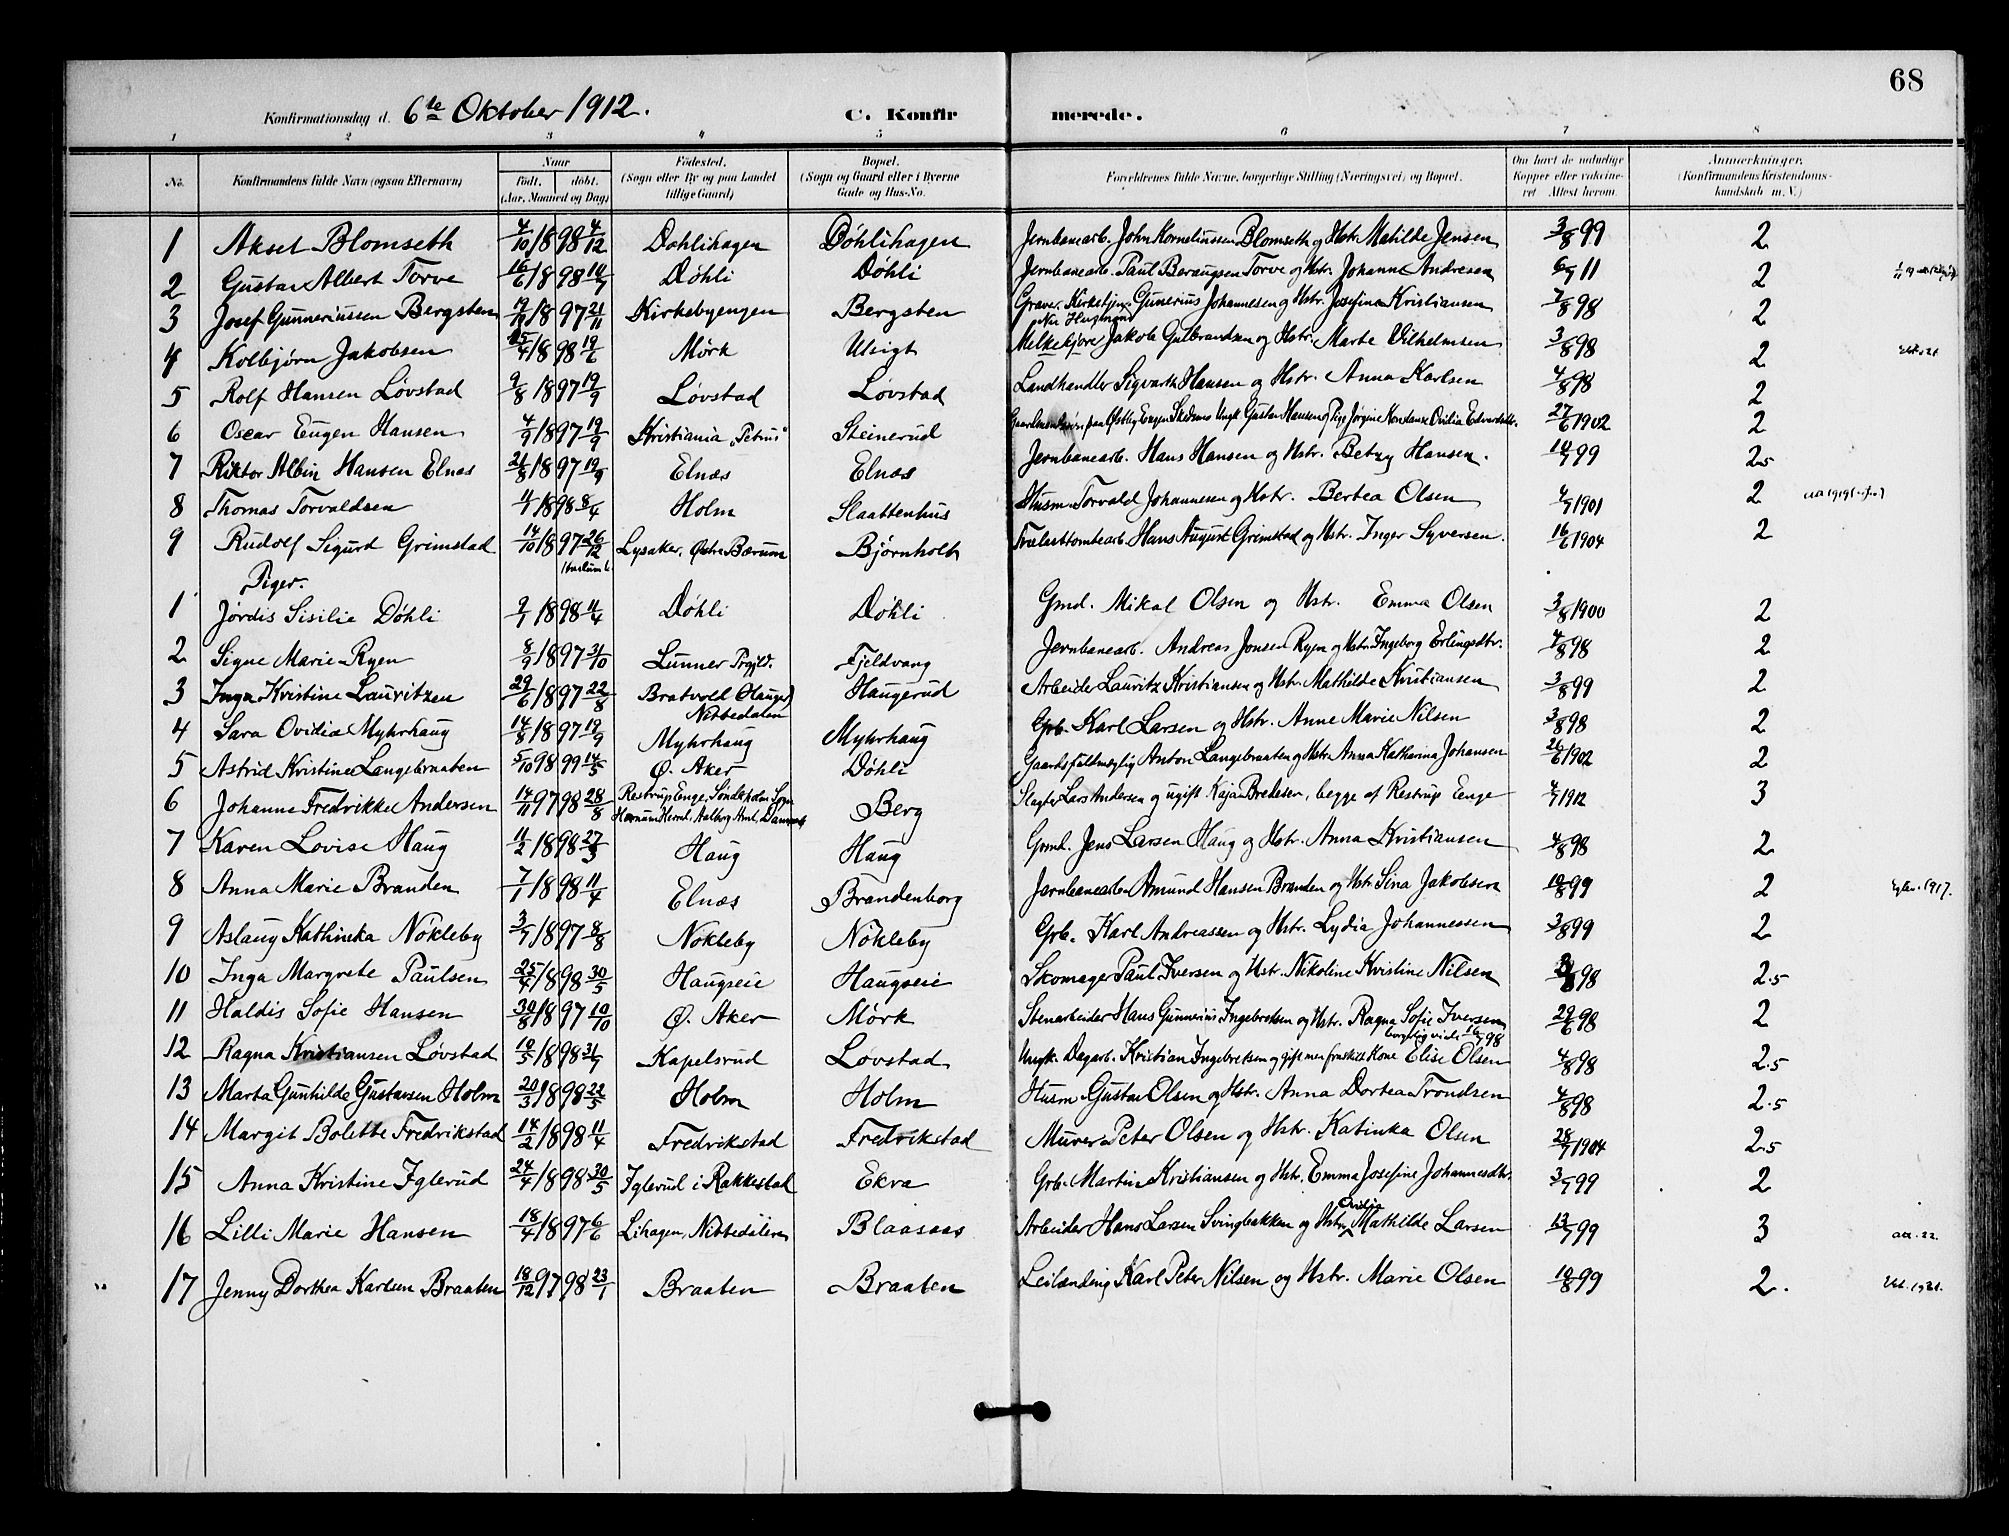 68
Konfirmationsdag d. 6te Oktober 1912. C. Konfirmerede.
1 2 3 4 5 6 7 8
No. Konfirmandens fulde Navn (ogsaa Efternavn) Naar født. døbt. (Aar, Maaned og Dag) Fødested. (Sogn eller By og paa Landet tillige Gaard) Bopæl. (Sogn og Gaard eller i Byerne Gade og Hus-No. Forældrenes fulde Navne, borgerlige Stilling (Næringsvei) og Bopæl. Om havt de naturlige Kopper eller vaccineret. Attest herom. Anmærkninger. (Konfirmandens Kristendomskundskab m. V.)
1 Aksel Blomseth 4/10 1898 4/12 Dohlihagen Döhlihagen Jernbanearb. John Korneliussen Blomseth og Hstr. Matilde Jensen 3/8 99 2
2 Gustav Albert Torve 16/6 1898 Döhli Döhli Jernbanearb. Paul Beraugsen Torve og Hstr. Johanne Andresen 6/7 11 2
3 Josef Gunneriussen Bergsten 1897 21/11 Kirkebyengen Bergsten Graver, Kirketjen. Gunerius Johannesen og Hstr. Josefine Kristiansen 7/8 98 2
4 Kolbjørn Jakobsen 25/4 1898 19/6 Mørk Ulsigt Melkekjører Jakob Gulbrandsen og Hstr. Marte Vilhelmsen 3/8 98 2
5 Rolf Hansen Løvstad 9/8 1897 19/9 Løvstad Løvstad Landhandler Sigvarth Hansen og Hstr. Anna Karlsen 4/8 98 2
6 Oscar Eugen Hansen 4/9 1897 19/9 Kristiania "Petrus" Steinerud Ungk. Gustav Hansen og Pige Jørgine Konstanse Ovilia 27/6 1902 2
7 Riktor Albin Hansen Elnæs 21/8 1897 19/9 Elnæs Elnæs Jernbanearb. Hans Hansen og Hstr. Betzy Hansen. 99 2.5
8 Thomas Torvaldsen 1898 8/4 Holm Slaattenhus Husm. Torvald Johannesen og Hstr. Bertea Olsen 4/7 1901 2
9 Rudolf Sigurd Grimstad 14/10 1897 26/12 Lysaker, Østre Bærum Bjørnholt Hans August Grimstad og Hstr. Inger Syversen. 16/6 1904 2
Piger.
1 Jørdis Sisilie Døhli 9/1 1898 11/4 Døhli Døhli Gmd. Mikal Olsen og Hstr. Emma Olsen 3/8 1900 2
2 Signe Marie Ryen 8/9 1897 31/10 Lunner Prgjld. Fjeldvang Jernbanearb. Andreas Jonsen Ryen og Hstr. Ingeborg Erlingsdtr. 4/8 98 2
3 Inga Kristine Lauritzen 29/6 1897 22/8 Bratvold Hauger, Nittedalen Haugerud Arbeider Lauritz Kristiansen og Hstr. Mathilde Kristiansen 3/8 99 2
4 Sara Ovidia Myhrhaug 14/8 1897 19/9 Myhrhaug Myhrhaug Grb. Karl Larsen og Hstr. Anne Marie Nilsen 3/8 98 2
5 Astrid Kristine Langebraaten 5/10 98 99 14/5 Ø. Aker Döhli Gaardsfuldmægtig Anton Langebraaten og Hstr. Anna Katharina Johansen 26/6 1902 2
6 Johanne Fredrikke Andersen 14/11 97 98 28/8 Restrup Enge, Sönderholm Sogn, Hornum Herred, Aalborg Amt, Danmark Berg Slagter Lars Andersen og ugift Kaja Bredesen, begge af Restrup Enge 4/7 1912 3
7 Karen Lovise Haug 11/2 1898 27/3 Haug Haug Grmd. Jens Larsen Haug og Hstr. Anna Kristiansen 4/8 98 2
8 Anna Marie Branden 7/1 1898 11/4 Elnæs Brandenborg Jernbanearb. Amund Hansen Branden og Hstr. Sina Jakobsen 10/8 99 2 1917.
9 Aslaug Kathinka Nökleby 3/7 1897 8/8 Nökleby Nökleby Grb. Karl Andreassen og Hstr. Lydia Johannessen 3/8 99 2
10 Inga Margrete Paulsen 25/4 1898 30/5 Haugseie Haugseie Skomager Paul Iversen og Hstr. Nikoline Kristine Nilsen 98 2.5
11 Haldis Sofie Hansen 30/8 1897 10/10 Ø. Aker Mörk Stenarbeider Hans Gunnerius Ingebretsen og Hstr. Ragna Sofie Iversen 29/6 98 2
12 Ragna Kristiansen Løvstad 10/5 1898 31/7 Kapelsrud Løvstad Ungk. Dagarb. Kristian Ingebretsen og gift men fraskilt Kone Elise Olsen 4/8 98 2.5
13 Marta Gunhilde Gustavsen Holm 20/3 1898 22/5 Holm Holm Husm. Gustav Olsen og Hstr. Anna Dortea Trondsen 4/8 98 2.5
14 Margit Bolette Fredrikstad 14/2 1898 11/4 Fredrikstad Fredrikstad Murer Peter Olsen og Hstr. Katinka Olsen 28/7 1904 2.5
15 Anna Kristine Iglerud 24/4 1898 30/5 Iglerud i Rakkestad Ekra Grb. Martin Kristiansen og Hstr. Emma Josefine Johannesdtr. 3/7 99 2
16 Lilli Marie Hansen 18/4 1897 6/6 Lihagen, Nittedalen Blaasaas Arbeider Hans Larsen Svingbakken og Hstr. Ovidia Mathilde Larsen 13/7 99 3
17 Jenny Dorthea Karlsen Braaten 18/12 97 98 23/1 Braaten Braaten Leilending Karl Peter Nilsen og Hstr. Marie Olsen 10/8 99 2.